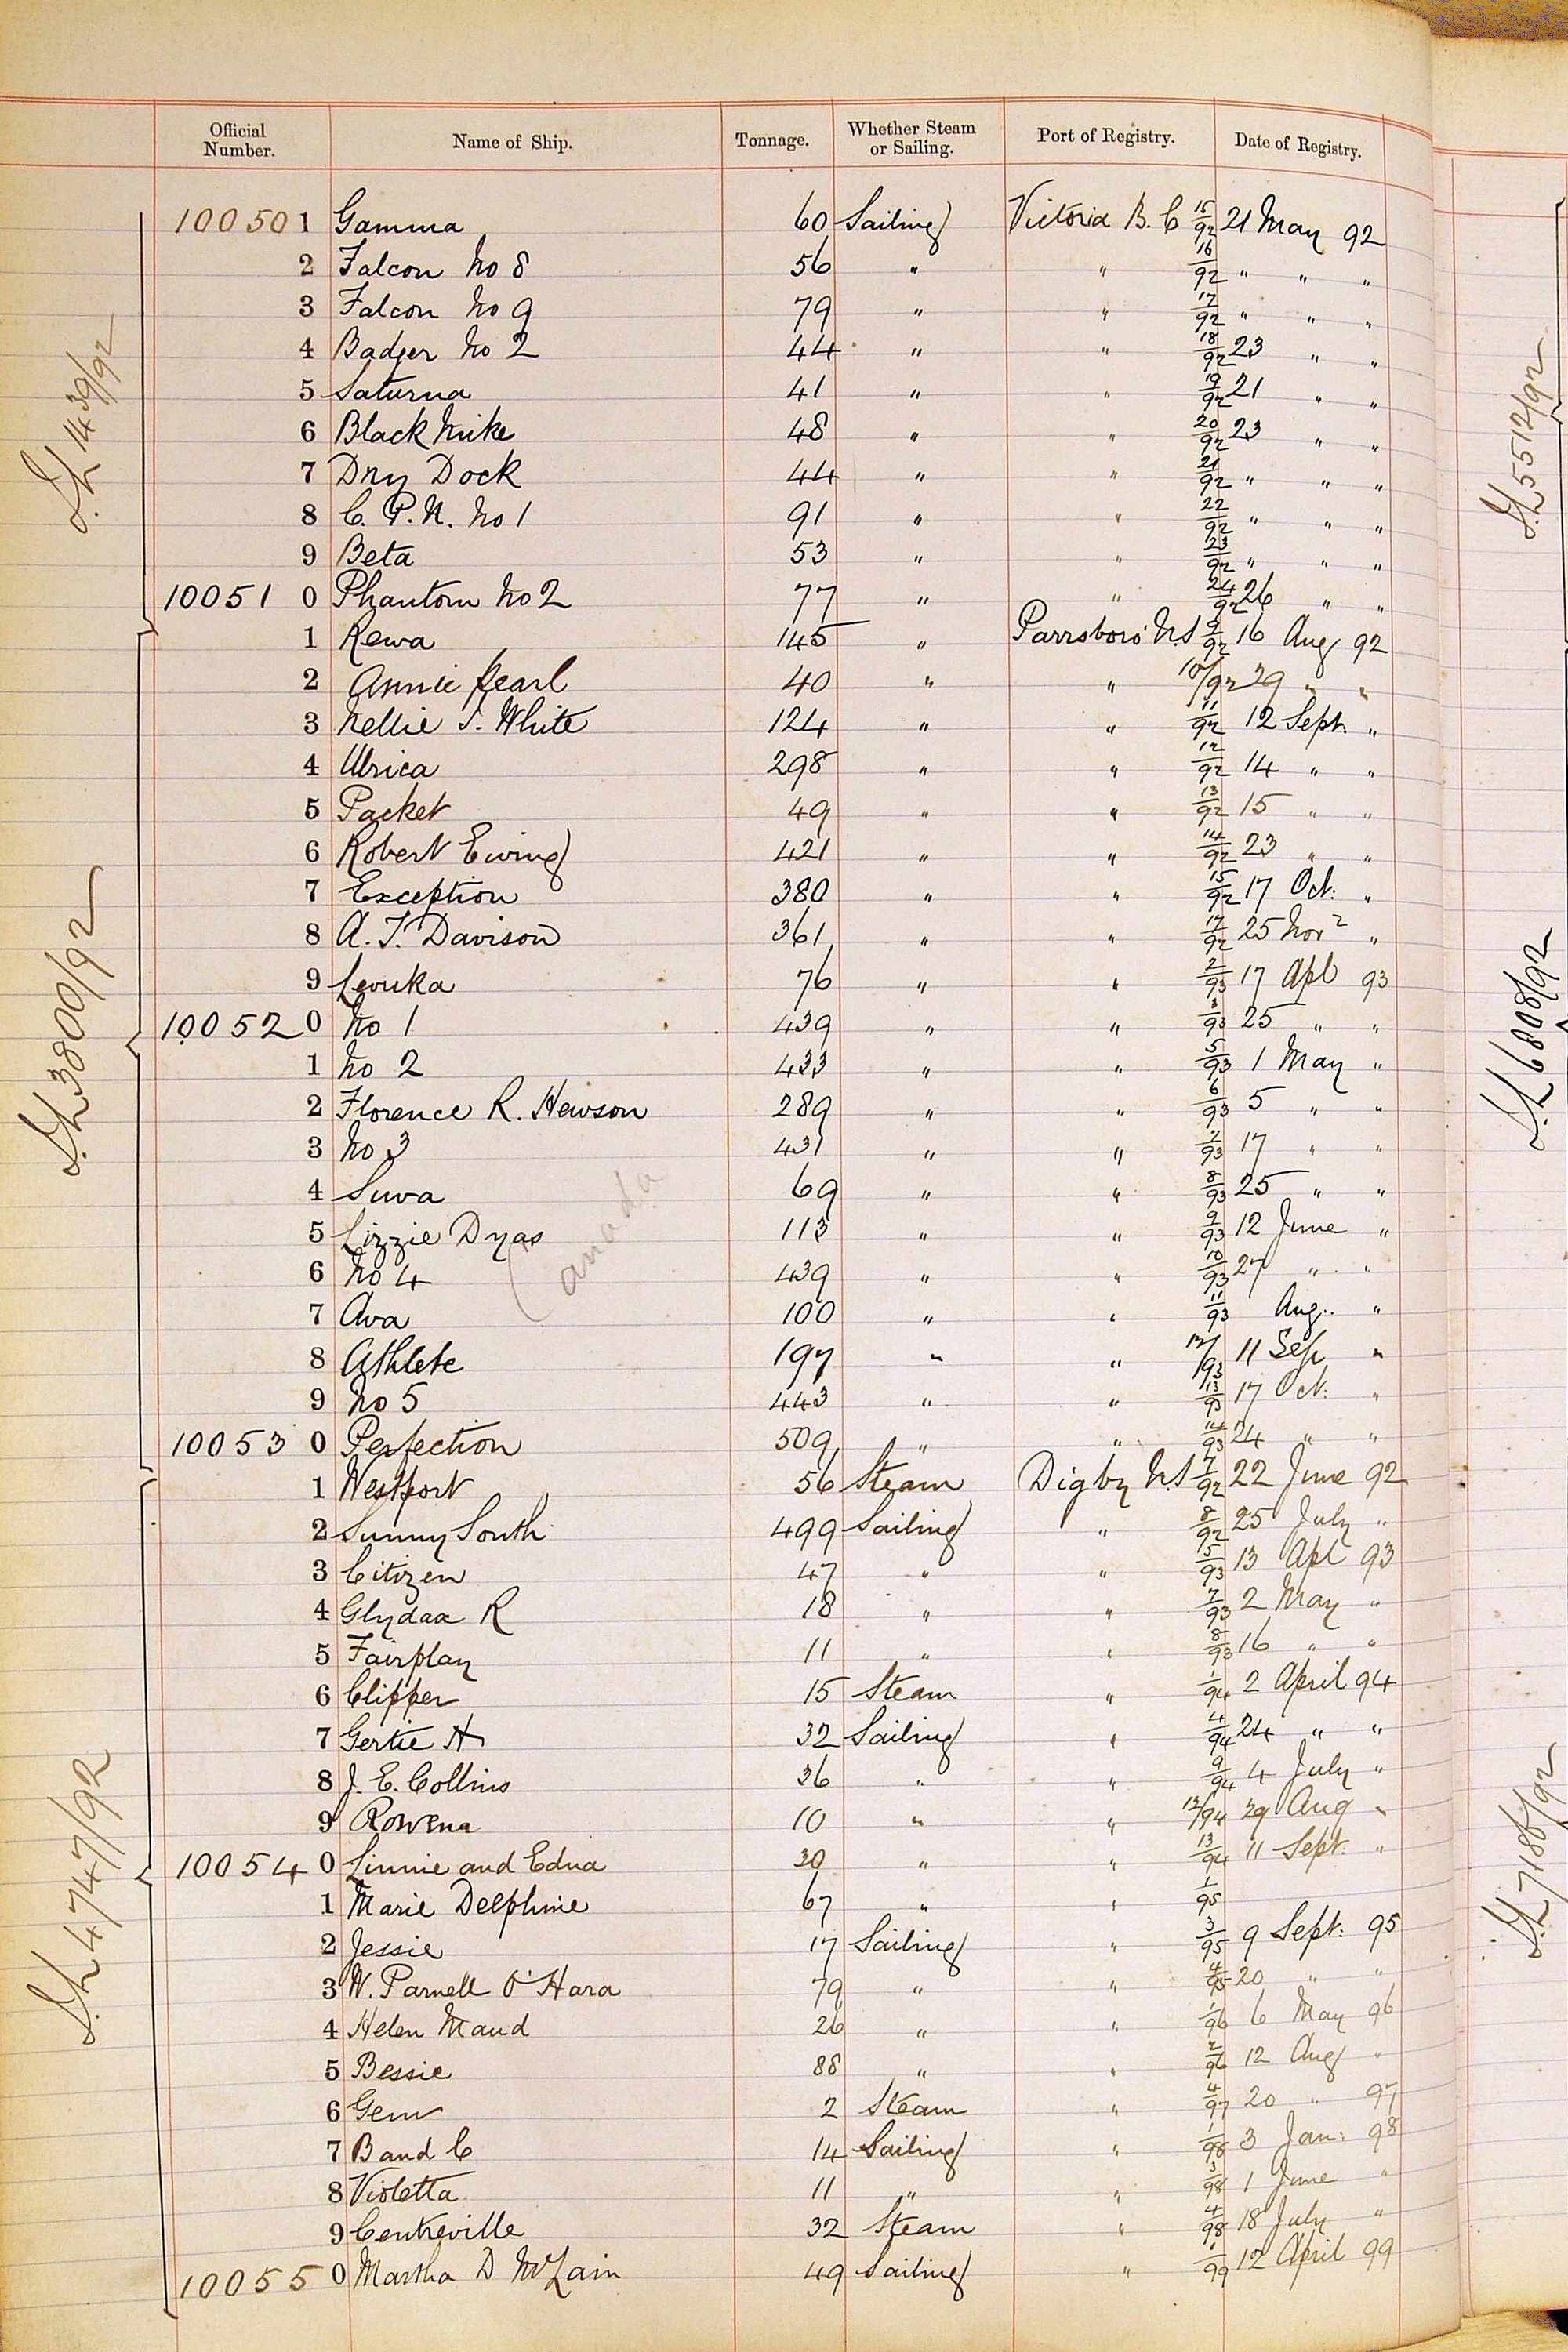 Official Number. Name of Ship. Tonnage. Whether Steam or Sailing. Port of Registry. Date of Registry.
100501 Gamma 60 Sailing Victoria B.C 15/92 21 May 92
2 Falcon No 8 56 " " 16/92 " " "
3 Falcon No 9 79 " " 17/92 " " "
4 Badger No 2 44 " " 18/92 23 " "
5 Saturna 41 " " 19/92 21 " "
6 Black Mike 48 " " 20/92 23 " "
7 Dry Dock 44 " " 21/92 " " "
8 C. P. N. No 1 91 " " 22/92 " " "
9 Beta 53 " " 23/92 " " "
10051 0 Phantom No 2 77 " " 24/92 26 " "
1 Rewa 145 " Parrsboro' N.S 9/92 16 Aug 92
2 Annie Pearl 40 " " 10/92 29 " "
3 Nellie I. White 124 " " 11/92 12 Sept. "
4 Ulrica 298 " " 12/92 14 " "
5 Packet 49 " " 13/92 15 " "
6 Robert Ewing 421 " " 14/92 23 " "
7 Exception 380 " " 15/92 17 Oct: "
8 A. T. Davison 361 " " 17/92 25 Nov "
9 Levuka 76 " " 2/93 17 Apl 93
10052 0 No 1 439 " " 3/93 25 " "
1 No 2 433 " " 5/93 1 May "
2 Florence R. Hewson 289 " " 6/93 5 " "
3 No 3 431 " " 7/93 17 " "
4 Suva 69 " " 8/93 25 " "
5 Lizzie Dyas 113 " " 9/93 12 June "
6 No 4 439 " " 10/93 27 " "
7 Ava 100 " " 11/93 Aug. "
8 Athlete 197 " " 12/93 11 Sep "
9 No 5 443 " " 13/93 17 Oct: "
10053 0 Perfection 509 " " 14/93 24 " "
1 Westport 56 Steam Digby N.S 7/92 22 June 92
2 Sunny South 499 Sailing " 8/92 25 July "
3 Citizen 47 " " 5/93 13 Apl 93
4 Glydaa R 18 " " 7/93 2 May "
5 Fairplay 11 " " 8/93 16 " "
6 Clipper 15 Steam " 1/94 2 April 94
7 Gertie H 32 Sailing " 4/94 24 " "
8 J. E. Collins 36 " " 9/94 4 July "
9 Rowena 10 " " 12/94 29 Aug "
10054 0 Linnie and Edna 30 " " 13/94 11 Sept: "
1 Marie Delphine 67 " " 1/95
2 Jessie 17 Sailing " 3/95 9 Sept: 95
3 W. Parnell O'Hara 79 " " 4/95 20 " "
4 Helen Maud 26 " " 1/96 6 May 96
5 Bessie 88 " " 2/96 12 Aug "
6 Gem 2 Steam " 4/97 20 " 97
7 B and C 14 Sailing " 1/98 3 Jan: 98
8 Violetta 11 " " 3/98 1 June "
9 Centreville 32 Steam " 4/98 18 July "
10055 0 Martha D McLain 49 Sailing " 1/99 12 April 99
Canada
1439/92
3800/92
4747/92
5512/92
6808/92
7186/92